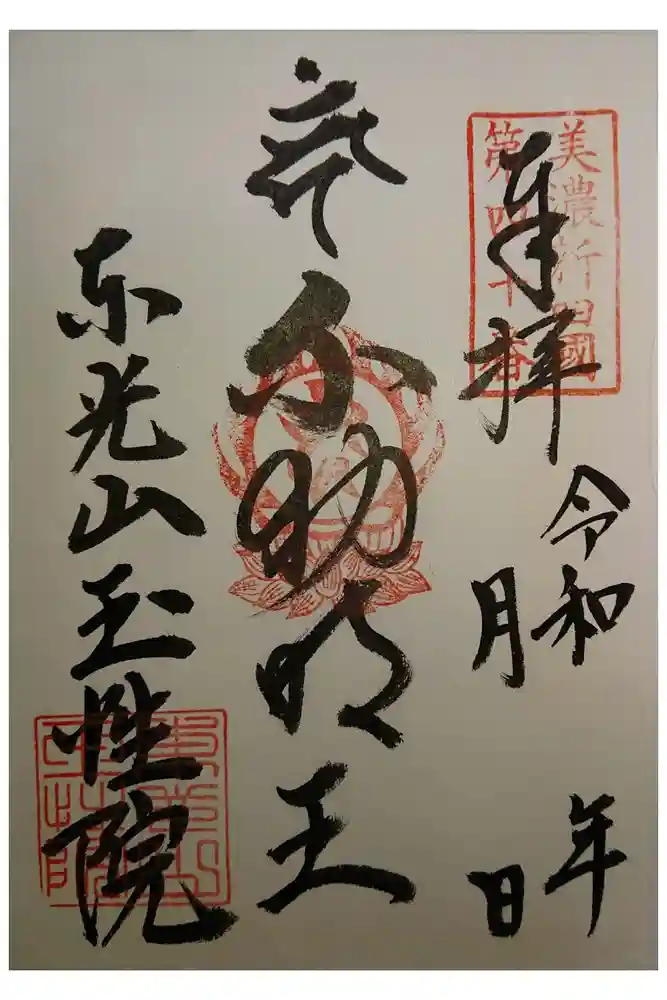 美濃新四國
第四十番
奉拝
令和 年
月 日
不動明王
東光山玉性院